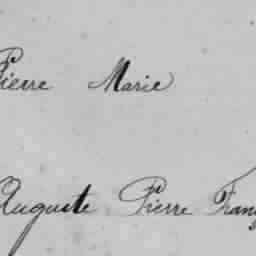 Pierre Marie
Auguste Pierre Fran